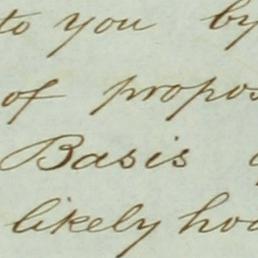 to you by
of propos
Basis
likely hoo